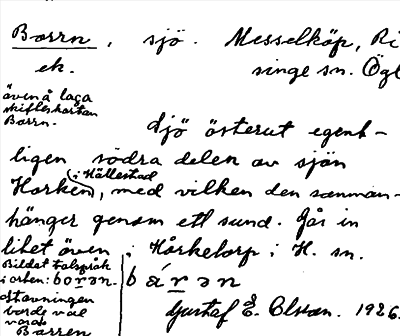 Borrn, sjö. Messelköp, Ri
ek. singe sn. Ögl
även å laga
skifteskartan
Borrn.
Sjö österut egent-
ligen södra delen av sjön
(i Hällestad
Horken), med vilken den samman-
hänger genom ett sund. Går in
litet även i Horketorp i H. sn.
Bildat talspråk
i orten: borən. bá́rən
Stavningen
borde väl
vara
Borren
Gustaf E. Olsson. 1926.